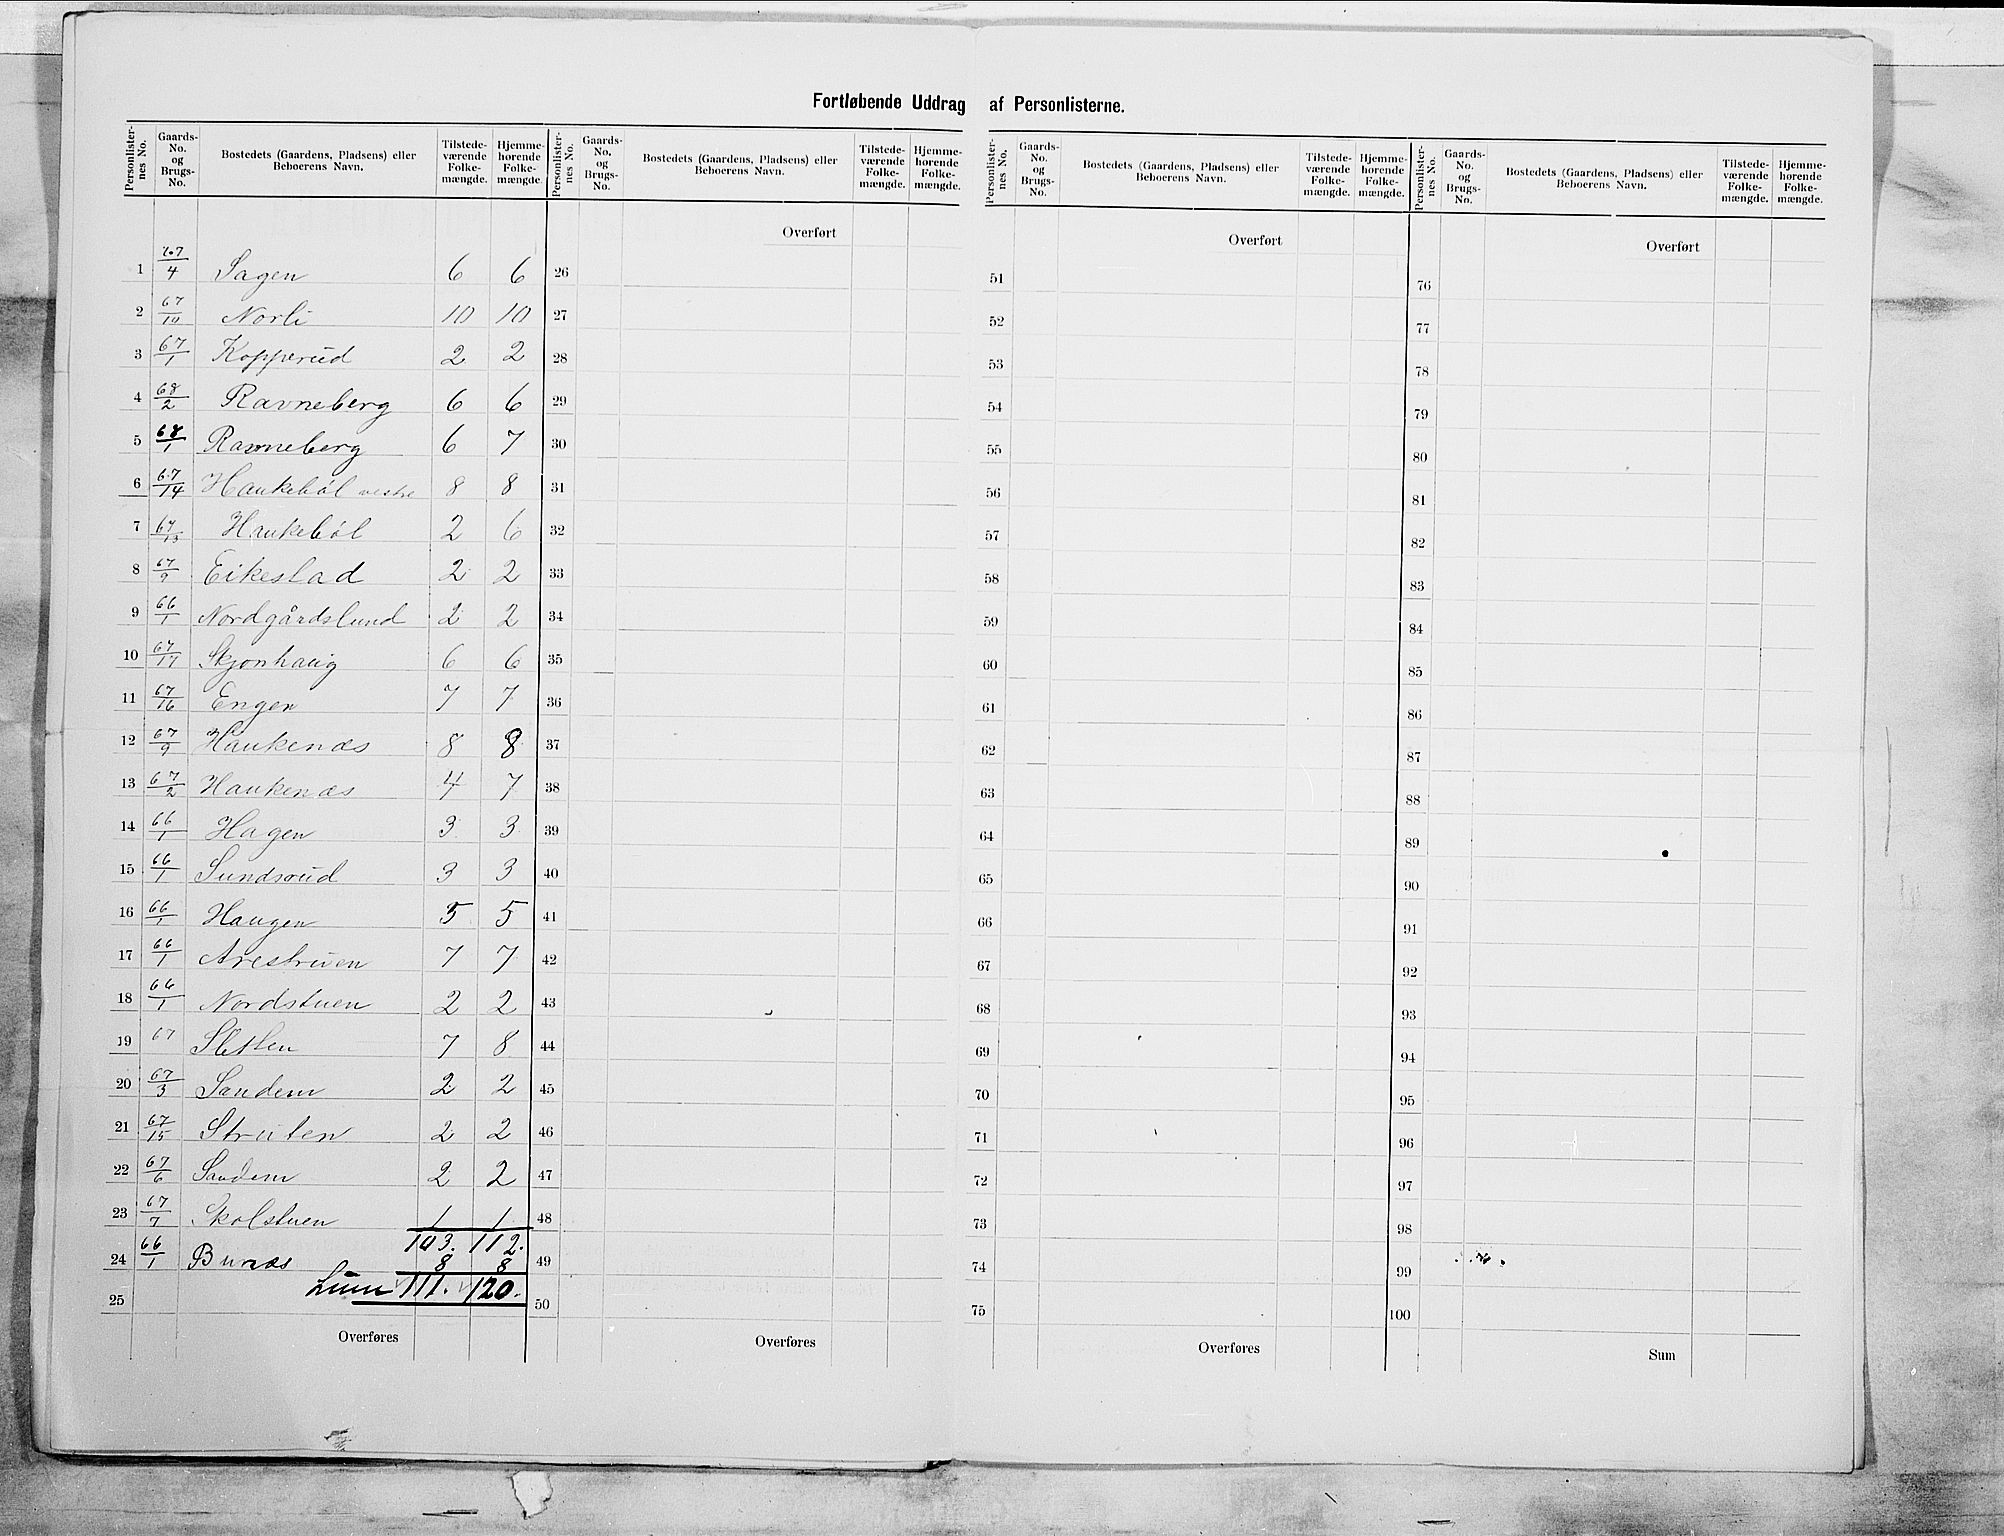 Fortløbende Uddrag af Personlisterne.
Personlister-nes No. Gaards-No. og Brugs-No. Bostedets (Gaardens, Pladsens) eller Beboerens Navn. Tilstede-værende Folke-mængde. Hjemme-hørende Folke-mængde.
Personlister-nes No. Gaards-No. og Brugs-No. Bostedets (Gaardens, Pladsens) eller Beboerens Navn. Tilstede-værende Folke-mængde. Hjemme-hørende Folke-mængde.
Personlister-nes No. Gaards-No. og Brugs-No. Bostedets (Gaardens, Pladsens) eller Beboerens Navn. Tilstede-værende Folke-mængde. Hjemme-hørende Folke-mængde.
Personlister-nes No. Gaards-No. og Brugs-No. Bostedets (Gaardens, Pladsens) eller Beboerens Navn. Tilstede-værende Folke-mængde. Hjemme-hørende Folke-mængde.
Overført Overført Overført
1 67/4 Sagen 6 6 26 51 76
2 67/10 Norli 10 10 27 52 77
3 67/1 Kopperud 2 2 28 53 78
4 68/2 Ravneberg 6 6 29 54 79
5 68/1 Ravneberg 6 7 30 55 80
6 67/14 Haukebøl vestre 8 8 31 56 81
7 67/13 Haukebøl 2 6 32 57 82
8 67/9 Eikestad 2 2 33 58 83
9 66/1 Nordgårdslund 2 2 34 59 84
10 67/17 Skjønhaug 6 6 35 60 85
11 67/16 Engen 7 7 36 61 86
12 67/9 Haukenæs 8 8 37 62 87
13 67/2 Haukenæs 4 7 38 63 88
14 66/1 Hagen 3 3 39 64 89
15 66/1 Sundsrud 3 3 40 65 90
16 66/1 Haugen 5 5 41 66 91
17 66/1 Arestruen 7 7 42 67 92
18 66/1 Nordstuen 2 2 43 68 93
19 67 Sletten 7 8 44 69 94
20 67/3 Sandem 2 2 45 70 95
21 67/15 Struten 2 2 46 71 96
22 67/6 Sandem 2 2 47 72 97
23 67/7 Skolstuen 1 1 48 73 98
103. 112.
24 66/1 Bunæs 8 8 49 74 99
25 Sum 111. 120. 50 75 100
Overføres Overføres Overføres Sum